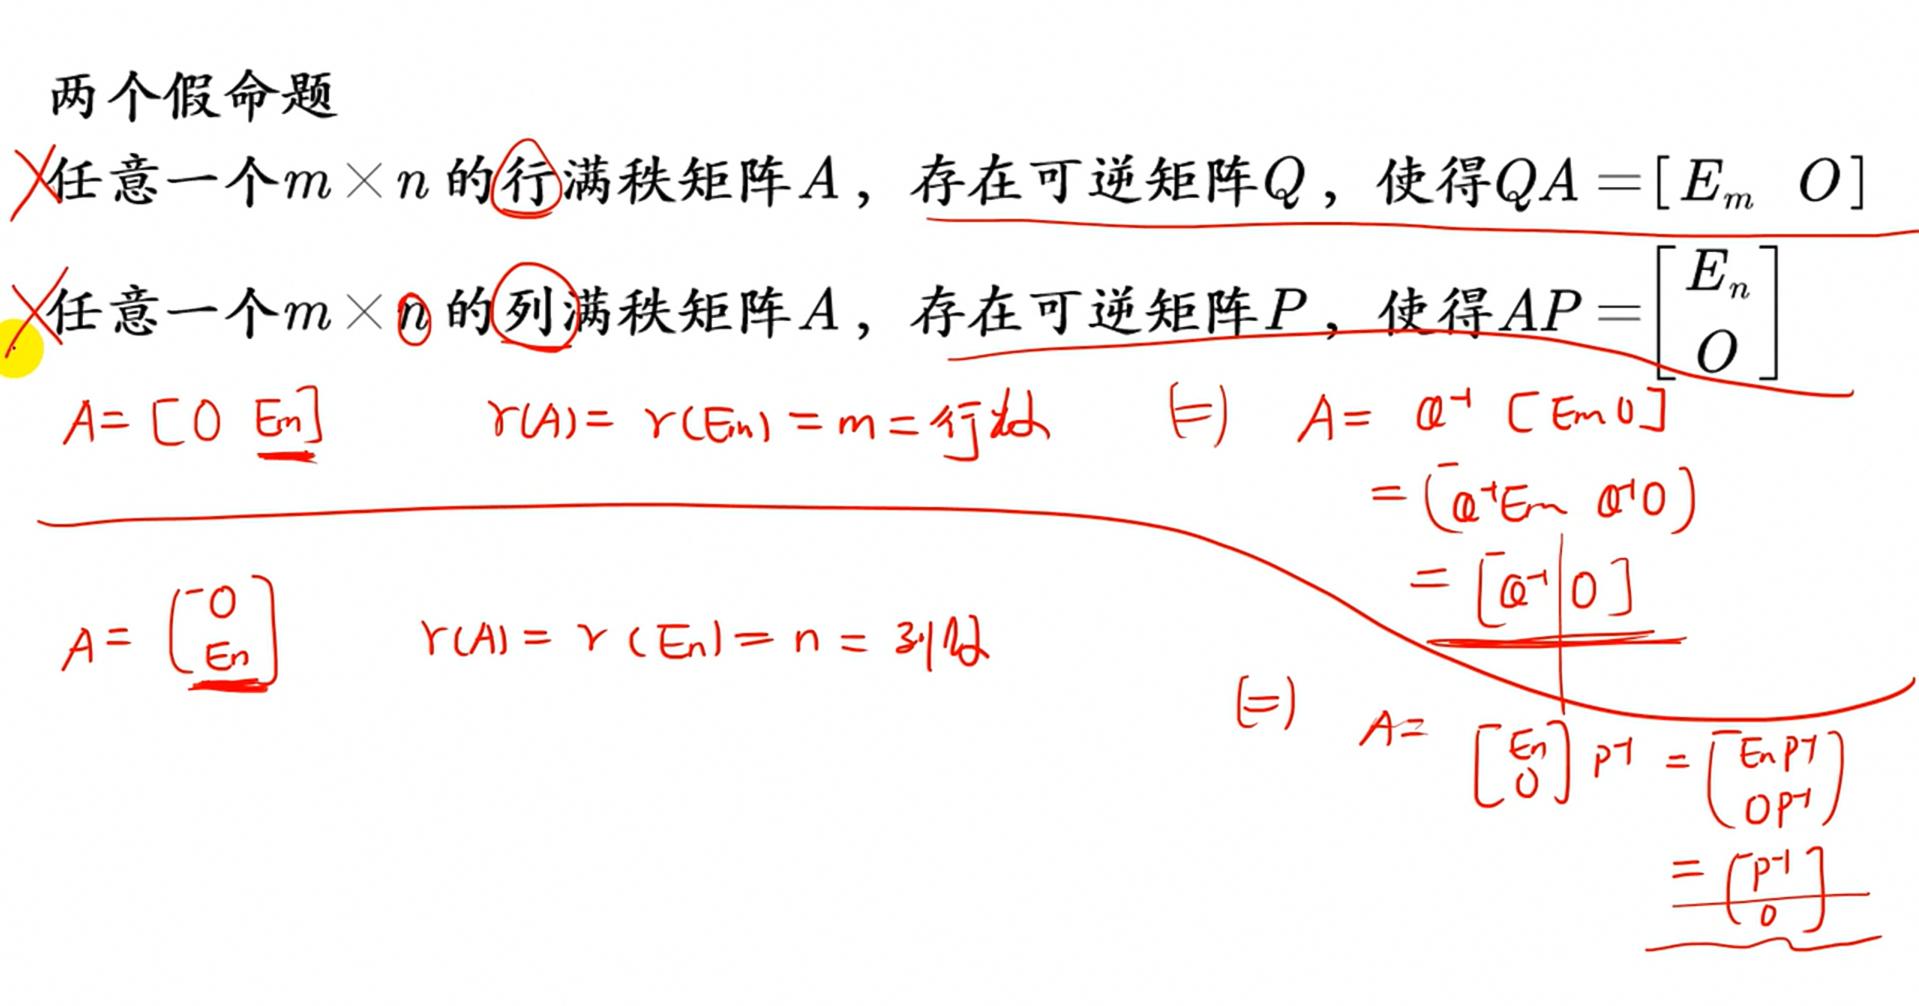 两个假命题
任意一个m×n的行满秩矩阵A，存在可逆矩阵Q，使得QA=[E_m O]
任意一个m×n的列满秩矩阵A，存在可逆矩阵P，使得AP=[E_n
O]
A=[O Em] r(A)=r(Em)=m=行数 (=) A=Q⁻¹[Em O]
=(Q⁻¹Em Q⁻¹O)
=[Q⁻¹|O]
A=[O
En] r(A)=r(En)=n=列数
(=) A=[En
O]P⁻¹=[EnP⁻¹
OP⁻¹]
=[P⁻¹
O]